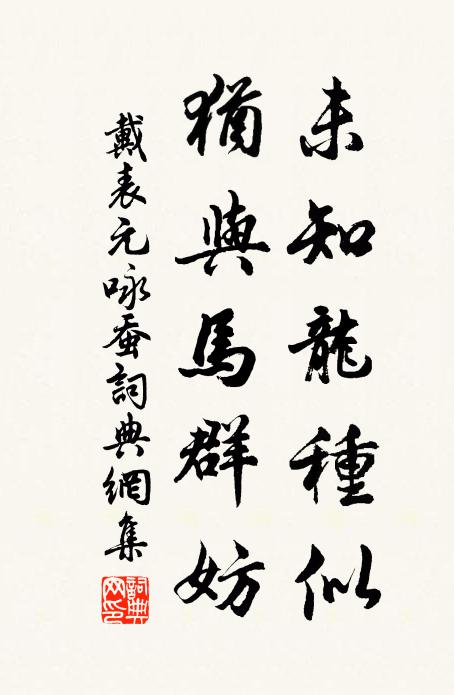 未知龍種似
猶與馬群妨
戴表元咏蚕詞典網集
詞典網印